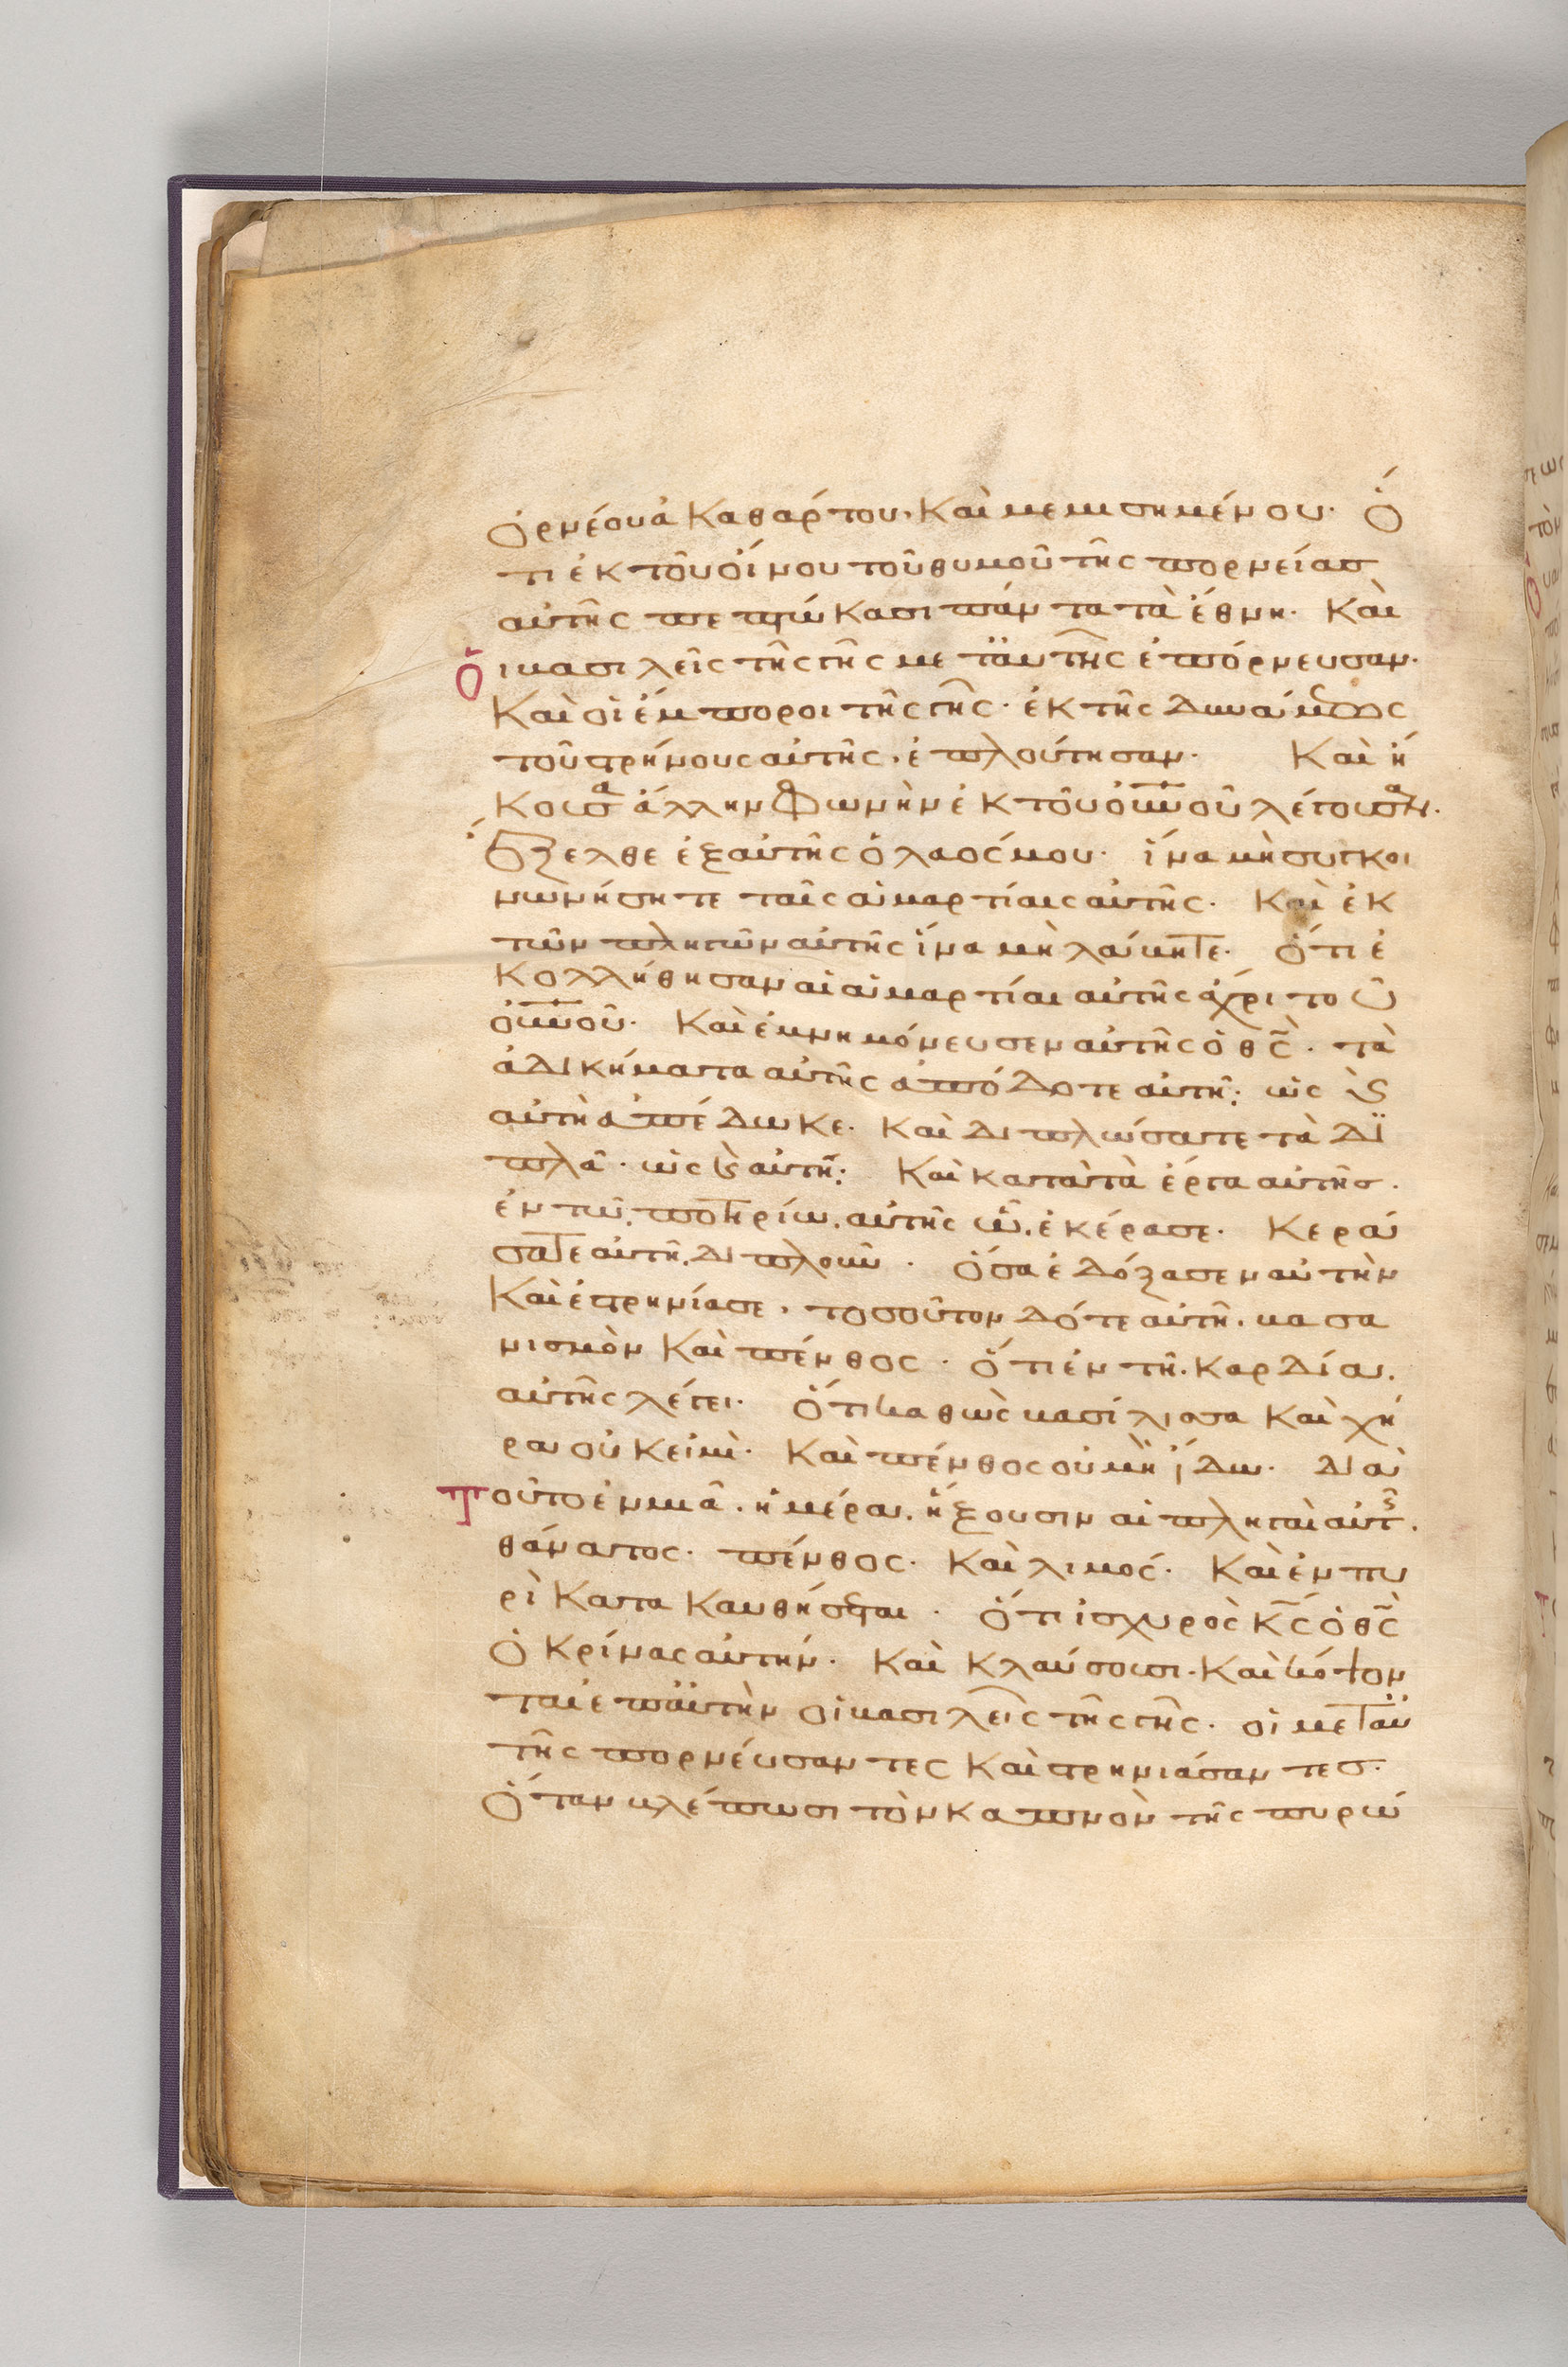 ὀρνέου ἀκαθάρτου, καὶ μεμισημένου. ὅ
τι ἐκ τοῦ οἴνου τοῦ θυμοῦ τῆς πορνείασ
αὐτῆς πεπώκασι πάντα τὰ ἔθνη. καὶ
ὁι βασιλεῖς τῆς γῆς μετ' αὐτῆς ἐπόρνευσαν.
καὶ οἱ ἔμποροι τῆς γῆς. ἐκ τῆς δυνάμεως
τοῦ στρήνους αὐτῆς, ἐπλούτησαν. καὶ ἤ
κουσα ἄλλην φωνὴν ἐκ τοῦ ουνου λέγουσαν.
ἔξελθε ἐξ αὐτῆς ὁ λαός μου. ἵνα μὴ συγκοι
νωνήσητε ταῖς ἁμαρτίαις αὐτῆς. καὶ ἐκ
τῶν πληγῶν αὐτῆς ἵνα μὴ λάβητε. ὅτι ἐ
κολλήθησαν αἱ ἁμαρτίαι αὐτῆς ἄχρι τοῦ
ουνου. καὶ ἐμνημόνευσεν αὐτῆς ὁ θς. τὰ
ἀδικήματα αὐτῆς ἀπόδοτε αὐτῆ; ὡς ϗ
αὐτὴ ἀπέδωκε. καὶ διπλώσατε τὰ δι
πλᾶ. ὡς ϗ αὐτῆ; καὶ κατὰ τὰ ἔργα αὐτῆσ.
ἐν τῶ ποτηρίω αὐτῆς ὧ ἐκέρασε. κερά
σατε αὐτῆ διπλοῦν. ὅσα ἐδόξασεν αὑτὴν
καὶ ἐστρηνίασε, τοσοῦτον δότε αὐτῆ. βασα
νισμὸν καὶ πένθος. ὅτι ἐν τῆ καρδία
αὐτῆς λέγει. ὅτι καθὼς βασίλισσα καὶ χή
ρα οὐκ εἰμὶ. καὶ πένθος οὐ μὴ ἴδω. διὰ
τοῦτο ἐν μιᾶ ἡμέρα ἥξουσιν αἱ πληγαὶ αὐτῆς.
θάνατος. πένθος. καὶ λιμός. καὶ ἐν πυ
ρὶ κατακαυθήσεται. ὅτι ἰσχυρὸς κς ὁ θς
ὁ κρίνας αὐτήν. καὶ κλαύσουσι. καὶ κόψον
ται ἐπ' αὐτὴν οἱ βασιλεῖς τῆς γῆς. οἱ μετ' αὐ
τῆς πορνεύσαντες καὶ στρηνιάσαντεσ.
ὅταν βλέπωσι τὸν καπνὸν τῆς πυρώ